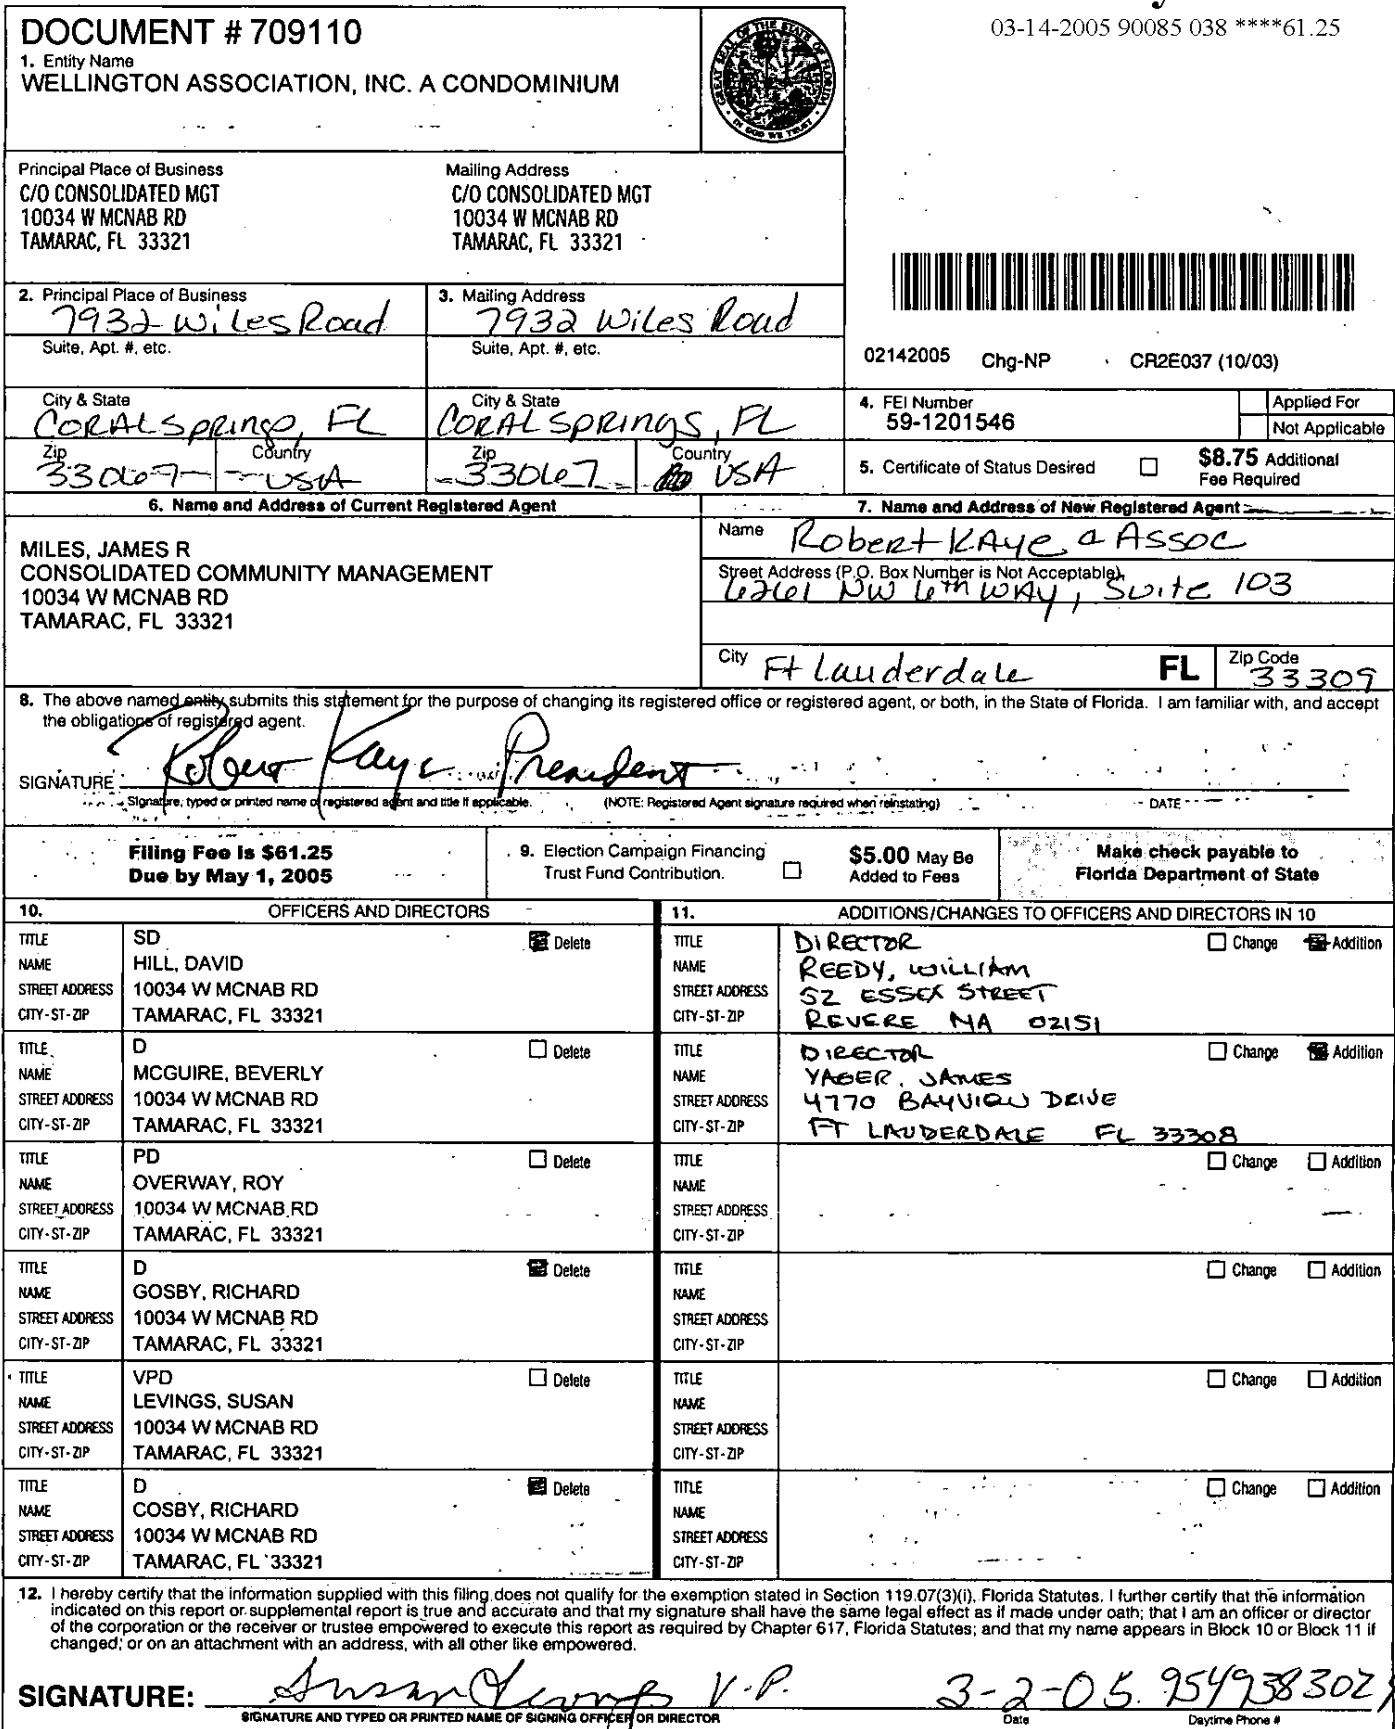 03-14-2005 90085 038 ****61.25
DOCUMENT # 709110
1. Entity Name
WELLINGTON ASSOCIATION, INC. A CONDOMINIUM
GREAT SEAL OF THE STATE OF FLORIDA
IN GOD WE TRUST
Principal Place of Business
C/O CONSOLIDATED MGT
10034 W MCNAB RD
TAMARAC, FL 33321
Mailing Address
C/O CONSOLIDATED MGT
10034 W MCNAB RD
TAMARAC, FL 33321
2. Principal Place of Business
7932 Wiles Road
Suite, Apt. #, etc.
City & State
CORAL SPRINGS, FL
Zip
33067
Country
USA
3. Mailing Address
7932 Wiles Road
Suite, Apt. #, etc.
City & State
CORAL SPRINGS, FL
Zip
33067
Country
USA
02142005 Chg-NP CR2E037 (10/03)
4. FEI Number
59-1201546
Applied For
Not Applicable
5. Certificate of Status Desired
$8.75 Additional
Fee Required
6. Name and Address of Current Registered Agent
MILES, JAMES R
CONSOLIDATED COMMUNITY MANAGEMENT
10034 W MCNAB RD
TAMARAC, FL 33321
7. Name and Address of New Registered Agent
Name Robert KAye & ASSOC
Street Address (P.O. Box Number is Not Acceptable)
6261 NW 6th WAY, Suite 103
City Ft Lauderdale FL Zip Code 33309
8. The above named entity submits this statement for the purpose of changing its registered office or registered agent, or both, in the State of Florida. I am familiar with, and accept
the obligations of registered agent.
SIGNATURE Robert Kaye President
Signature, typed or printed name of registered agent and title if applicable. (NOTE: Registered Agent signature required when reinstating) DATE
Filing Fee is $61.25
Due by May 1, 2005
9. Election Campaign Financing
Trust Fund Contribution.
$5.00 May Be
Added to Fees
Make check payable to
Florida Department of State
10. OFFICERS AND DIRECTORS
TITLE SD Delete
NAME HILL, DAVID
STREET ADDRESS 10034 W MCNAB RD
CITY-ST-ZIP TAMARAC, FL 33321
TITLE D Delete
NAME MCGUIRE, BEVERLY
STREET ADDRESS 10034 W MCNAB RD
CITY-ST-ZIP TAMARAC, FL 33321
TITLE PD Delete
NAME OVERWAY, ROY
STREET ADDRESS 10034 W MCNAB RD
CITY-ST-ZIP TAMARAC, FL 33321
TITLE D Delete
NAME GOSBY, RICHARD
STREET ADDRESS 10034 W MCNAB RD
CITY-ST-ZIP TAMARAC, FL 33321
TITLE VPD Delete
NAME LEVINGS, SUSAN
STREET ADDRESS 10034 W MCNAB RD
CITY-ST-ZIP TAMARAC, FL 33321
TITLE D Delete
NAME COSBY, RICHARD
STREET ADDRESS 10034 W MCNAB RD
CITY-ST-ZIP TAMARAC, FL 33321
11. ADDITIONS/CHANGES TO OFFICERS AND DIRECTORS IN 10
TITLE DIRECTOR Change Addition
NAME REEDY, WILLIAM
STREET ADDRESS 52 ESSEX STREET
CITY-ST-ZIP REVERE MA 02151
TITLE DIRECTOR Change Addition
NAME YAGER, JAMES
STREET ADDRESS 4770 BAYVIEW DRIVE
CITY-ST-ZIP FT LAUDERDALE FL 33308
TITLE Change Addition
NAME
STREET ADDRESS
CITY-ST-ZIP
TITLE Change Addition
NAME
STREET ADDRESS
CITY-ST-ZIP
TITLE Change Addition
NAME
STREET ADDRESS
CITY-ST-ZIP
TITLE Change Addition
NAME
STREET ADDRESS
CITY-ST-ZIP
12. I hereby certify that the information supplied with this filing does not qualify for the exemption stated in Section 119.07(3)(i), Florida Statutes. I further certify that the information
indicated on this report or supplemental report is true and accurate and that my signature shall have the same legal effect as if made under oath; that I am an officer or director
of the corporation or the receiver or trustee empowered to execute this report as required by Chapter 617, Florida Statutes; and that my name appears in Block 10 or Block 11 if
changed, or on an attachment with an address, with all other like empowered.
SIGNATURE: Susan Levings V.P. 3-2-05 9549383021
SIGNATURE AND TYPED OR PRINTED NAME OF SIGNING OFFICER OR DIRECTOR Date Daytime Phone #